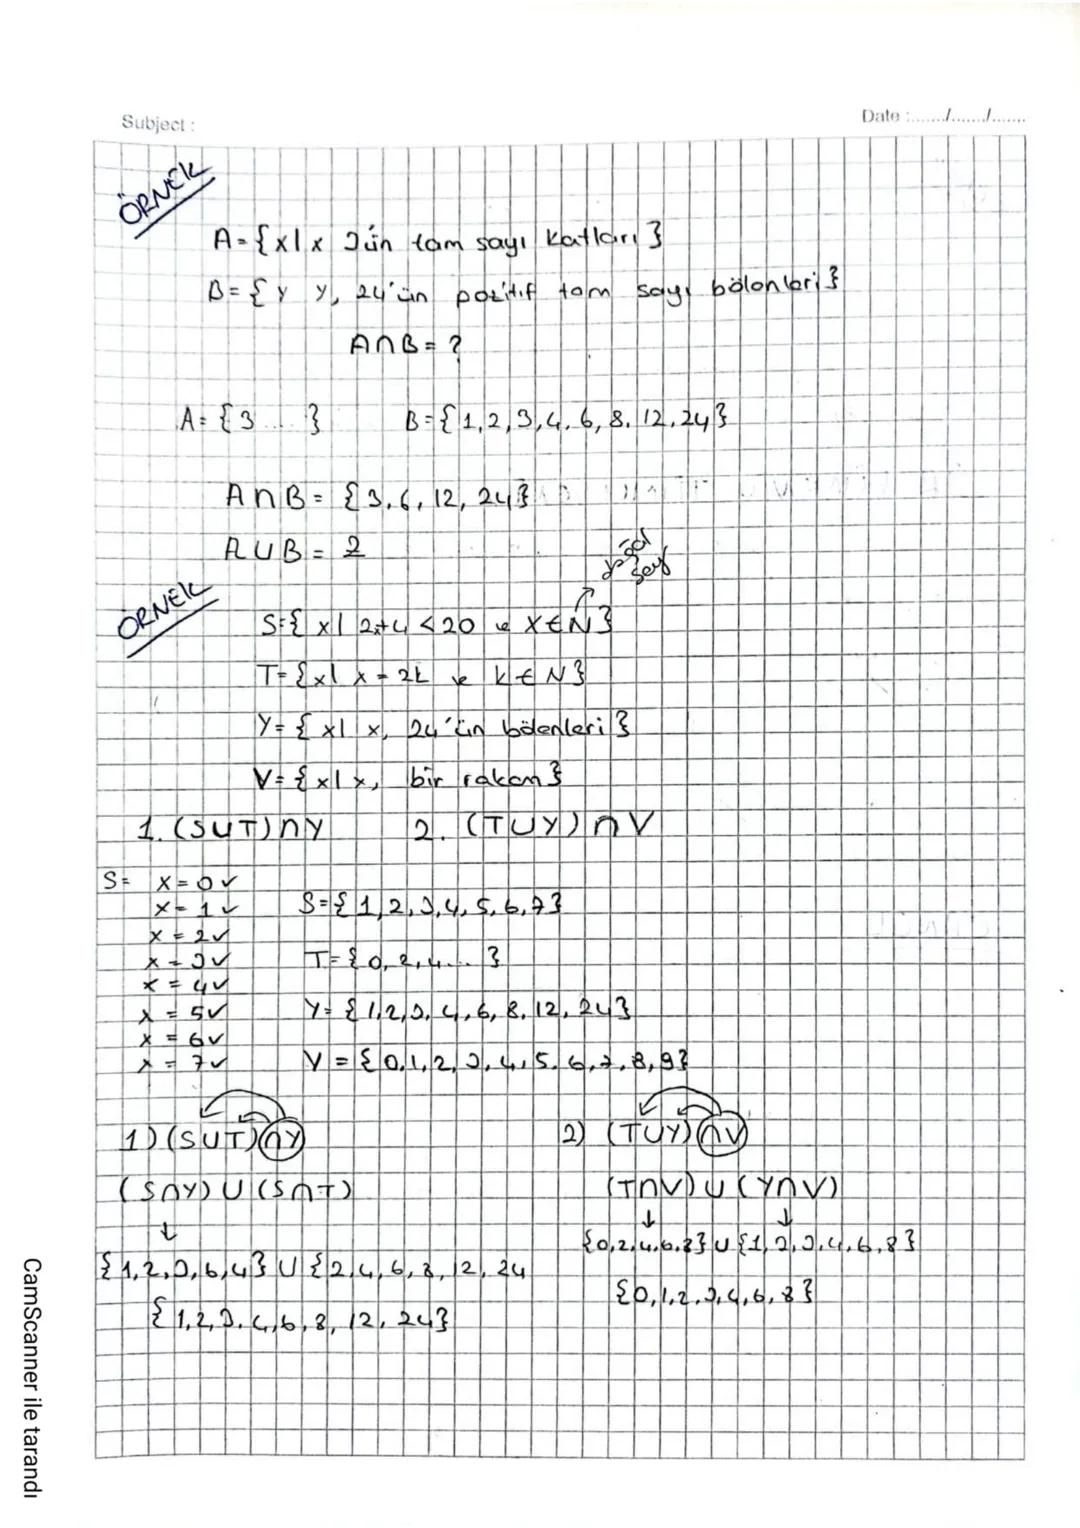 Subject :
Date :......./......./.......
ÖRNEK
A={x|x 3ün tam sayı katları}
B={y y, 24'ün pozitif tam sayı bölenleri}
A∩B=?
A={3....} B={1,2,3,4,6,8,12,24}
A∩B={3,6,12,24}
AUB=2
ÖRNEK
S={x| 2x+4<20 ve X∈N}
T={x| x=2k ve k∈N}
Y={x| x, 24'ün bölenleri}
V={x|x, bir rakam}
1. (SUT)∩Y 2. (TUY)∩V
S= x=0✓
x=1✓ S={1,2,3,4,5,6,7}
x=2✓
x=3✓ T={0,2,4...}
x=4✓
x=5✓ Y={1,2,3,4,6,8,12,24}
x=6✓
x=7✓ V={0,1,2,3,4,5,6,7,8,9}
1)(SUT)∩Y 2) (TUY)∩V
(S∩Y)U(S∩T) (T∩V)U(Y∩V)
↓ ↓ ↓
{0,2,4,6,8}U{1,2,3,4,6,8}
{1,2,3,6,4}U{2,4,6,8,12,24
{0,1,2,3,4,6,8}
{1,2,3,4,6,8,12,24}
CamScanner ile tarandı